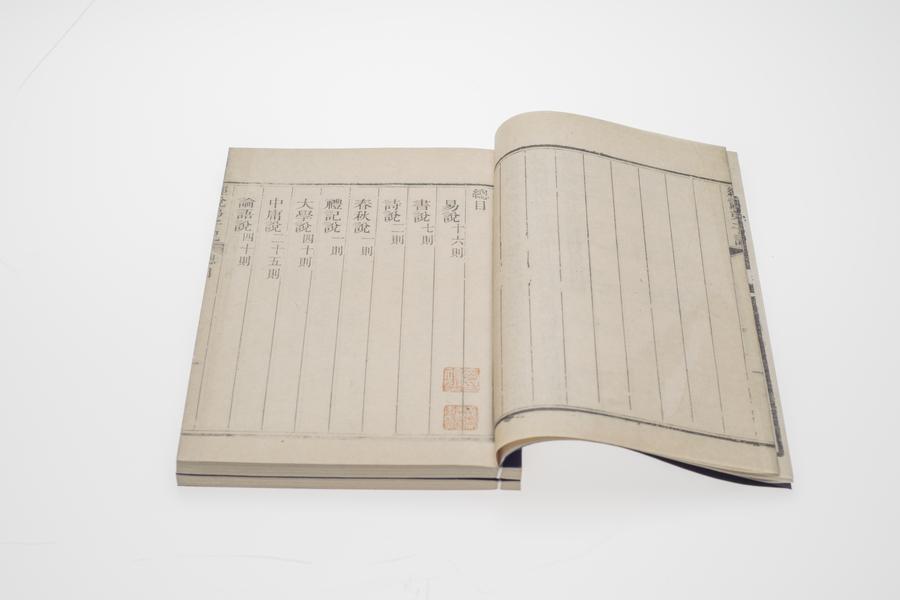 總目
易說十六則
書說七則
詩說二則
春秋說一則
禮記說一則
大學說四十則
中庸說二十五則
論語說四十則